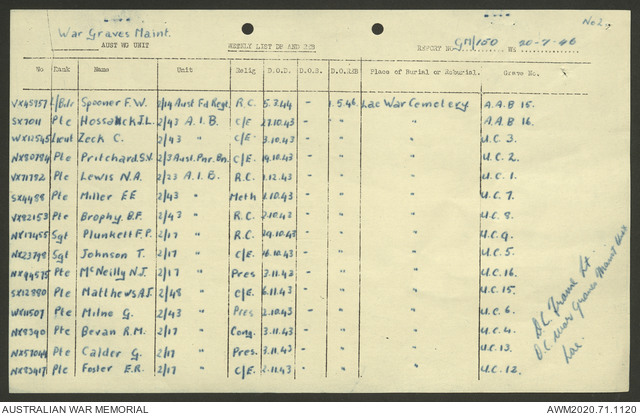 No 2.
War Graves Maint.
AUST WG UNIT WEEKLY LIST DB AND REB REPORT NO GM/150 WE 20-7-46
No Rank Name Unit Relig D.O.D. D.O.B. D.O.REB Place of Burial or Reburial. Grave No.
VX45757 L/Bdr Spooner F.W. 2/14 Aust Fd Regt. R.C. 5.2.44 - 1.5.46 Lae War Cemetery A.A.B 15.
SX7011 Pte Hossack J.L. 2/43 A.I.B. C/E 27.10.43 - " " A.A.B 16.
WX12545 Lieut Zeck C. 2/43 " C/E 3.10.43 - " " U.C. 3.
NX50784 Pte Pritchard S.V. 2/3 Aust. Pnr. Bn. C/E 19.10.43 - " " U.C. 2.
VX71752 Pte Lewis N.A. 2/23 A.I.B. R.C. 1.12.43 - " " U.C. 1.
SX4458 Pte Miller E E 2/43 " Meth 1.10.43 - " " U.C. 7.
VX82153 Pte Brophy. B.F. 2/43 " R.C. 2.10.43 - " " U.C. 8.
NX17455 Sgt Plunkett F.P. 2/17 " R.C. 29.10.43 - " " U.C. 9.
NX23748 Sgt Johnson T. 2/17 " C/E. 16.10.43 - " " U.C. 5.
NX94575 Pte McNeilly N.J. 2/17 " Pres 3.11.43 - " " U.C. 16.
SX12880 Pte Matthews A.J. 2/48 " C/E 6.11.43 - " " U.C. 15.
WX11507 Pte Milne G. 2/43 " Pres 2.10.43 - " " U.C. 6.
NX8390 Pte Bevan R.M. 2/17 " Cong. 3.11.43 - " " U.C. 4.
NX57041 Pte Calder G. 2/17 " Pres. 3.11.43 - " " U.C. 13.
NX83417 Pte Foster E.R. 2/17 " C/E 2.11.43 - " " U.C. 12.
Lt.
O.C. War Graves Maint Unit
Lae.
AUSTRALIAN WAR MEMORIAL AWM2020.71.1120